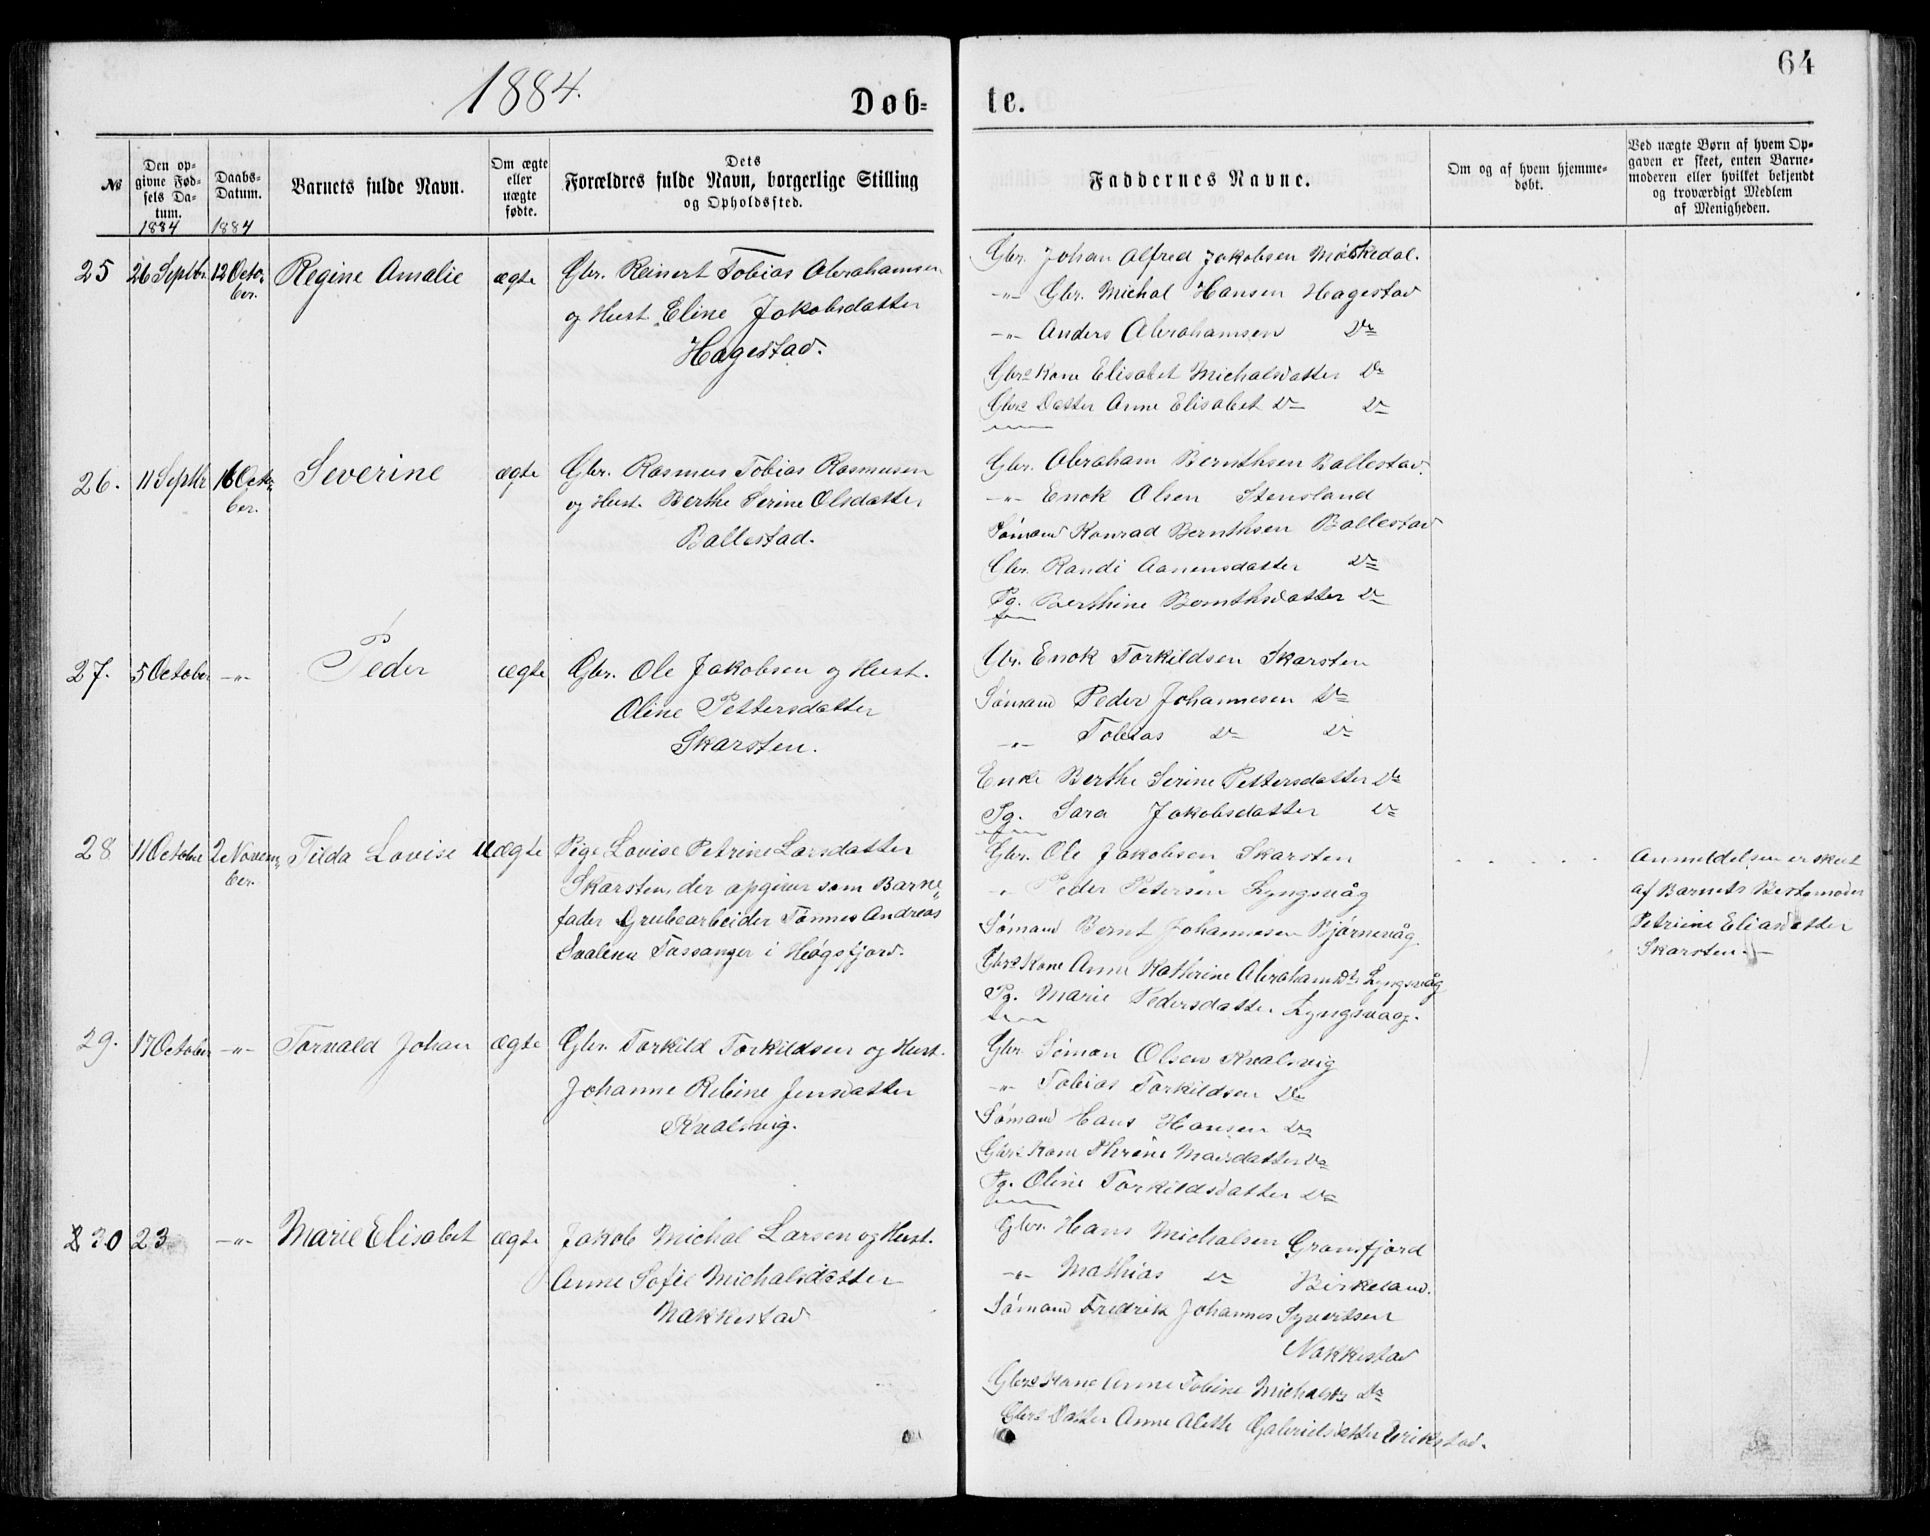 1884.
Døb=
te.
64
№
Den op=
givne Fød=
sels Da=
tum.
1884
Daabs=
Datum.
1884
Barnets fulde Navn.
Om ægte
eller
uægte
fødte.
Dets
Forældres fulde Navn, borgerlige Stilling
og Opholdssted.
Faddernes Navne.
Om og af hvem hjemme=
døbt.
Ved uægte Børn af hvem Op=
gaven er skeet, enten Barne=
moderen eller hvilket bekjendt
og troværdigt Medlem
af Menigheden.
25
26 Septbr.
12 Octo-
ber.
Regine Amalie
ægte
Gbr. Reinert Tobias Abrahamsen
og Hust. Eline Jakobsdatter
Hagestad.
Gbr. Johan Alfred Jakobsen Møskedal.
-"- Gbr. Michal Hansen Hagestad
-"- Anders Abrahamsen Do
Gbrs Kone Elisabet Michalsdatter Do
Gbrs Datter Anne Elisabet Do Do
26.
11 Septbr
16 Octo-
ber.
Severine
ægte
Gbr. Rasmus Tobias Rasmusen
og Hust. Berthe Serine Olsdatter
Ballestad.
Gbr. Abraham Bernthsen Ballestad.
-"- Enok Olsen Stensland
Sømand Konrad Bernthsen Ballestad
Gbr. Randi Aanensdatter Do
Pg. Berthine Bernthsdatter Do
27.
5 October
-"-
Peder
ægte
Gbr. Ole Jakobsen og Hust.
Oline Pettersdatter
Skarsten.
Gbr. Enok Torkildsen Skarsten
Sømand Peder Johannesen Do
-"- Tobias Do Do
Enke Berthe Serine Pettersdatter Do
Pg. Sara Jakobsdatter Do
28
11 October
2 Novem-
ber.
Tilda Lovise
uægte
Pige Lovise Petrine Larsdatter
Skarsten, der opgiver som Barne
fader Grubearbeider Tønnes Andreas
i Høgsfjord.
Gbr. Ole Jakobsen Skarsten
-"- Peder Petersen Lyngsvåg
Sømand Bernt Johannesen Bjørnevåg
Gbrs Kone Anne Kathrine Abrahamsdt. Lyngsvåg
Pg. Marie Pedersdatter Lyngsvaag.
Anmeldelsen er skeet
af Barnets Bestemoder
Petrine Eliasdatter
Skarsten.-
29.
17 October
-"-
Torvald Johan
ægte
Gbr. Torkild Torkildsen og Hust.
Johanne Rebine Jensdatter
Kvalsvig.
Gbr. Simon Olsen Kvalsvig
-"- Tobias Torkildsen Do
Sømand Hans Hansen Do
Gbrs Kone Thrine Do
Pg. Oline Torkildsdatter Do
30
23
-"-
Marie Elisabet
ægte
Jakob Michal Larsen og Hust.
Anne Sofie Michalsdatter
Nakkestad
Gbr. Hans Michalsen Gransfjord
-"- Mathias Do Birkeland.
Sømand Fredrik Johannes Syvertsen
Nakkestad
Gbrs Kone Anne Tobine Michalsdt. Do
Gbrs Datter Anne Alette Gabrielsdatter Erikstad.